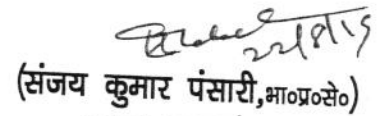 22/8/15
(संजय कुमार पंसारी,भा०प्र०से०)